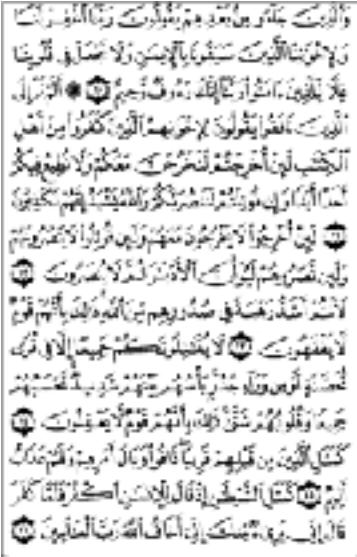 وَالَّذِينَ جَاءُو مِنۢ بَعْدِهِمْ يَقُولُونَ رَبَّنَا اغْفِرْ لَنَا
وَلِإِخْوَانِنَا الَّذِينَ سَبَقُونَا بِالْإِيمَانِ وَلَا تَجْعَلْ فِي قُلُوبِنَا
غِلًّا لِّلَّذِينَ ءَامَنُوا رَبَّنَا إِنَّكَ رَءُوفٌ رَّحِيمٌ ۝ ۞ أَلَمْ تَرَ إِلَى
الَّذِينَ نَافَقُوا يَقُولُونَ لِإِخْوَانِهِمُ الَّذِينَ كَفَرُوا مِنْ أَهْلِ
الْكِتَابِ لَئِنْ أُخْرِجْتُمْ لَنَخْرُجَنَّ مَعَكُمْ وَلَا نُطِيعُ فِيكُمْ
أَحَدًا أَبَدًا وَإِن قُوتِلْتُمْ لَنَنصُرَنَّكُمْ وَاللَّهُ يَشْهَدُ إِنَّهُمْ لَكَاذِبُونَ
۝ لَئِنْ أُخْرِجُوا لَا يَخْرُجُونَ مَعَهُمْ وَلَئِن قُوتِلُوا لَا يَنصُرُونَهُمْ
وَلَئِن نَّصَرُوهُمْ لَيُوَلُّنَّ الْأَدْبَارَ ثُمَّ لَا يُنصَرُونَ ۝
لَأَنتُمْ أَشَدُّ رَهْبَةً فِي صُدُورِهِم مِّنَ اللَّهِ ذَٰلِكَ بِأَنَّهُمْ قَوْمٌ
لَّا يَفْقَهُونَ ۝ لَا يُقَاتِلُونَكُمْ جَمِيعًا إِلَّا فِي قُرًى
مُّحَصَّنَةٍ أَوْ مِن وَرَاءِ جُدُرٍ بَأْسُهُم بَيْنَهُمْ شَدِيدٌ تَحْسَبُهُمْ
جَمِيعًا وَقُلُوبُهُمْ شَتَّىٰ ذَٰلِكَ بِأَنَّهُمْ قَوْمٌ لَّا يَعْقِلُونَ ۝
كَمَثَلِ الَّذِينَ مِن قَبْلِهِمْ قَرِيبًا ذَاقُوا وَبَالَ أَمْرِهِمْ وَلَهُمْ عَذَابٌ
أَلِيمٌ ۝ كَمَثَلِ الشَّيْطَانِ إِذْ قَالَ لِلْإِنسَانِ اكْفُرْ فَلَمَّا كَفَرَ
قَالَ إِنِّي بَرِيءٌ مِّنكَ إِنِّي أَخَافُ اللَّهَ رَبَّ الْعَالَمِينَ ۝